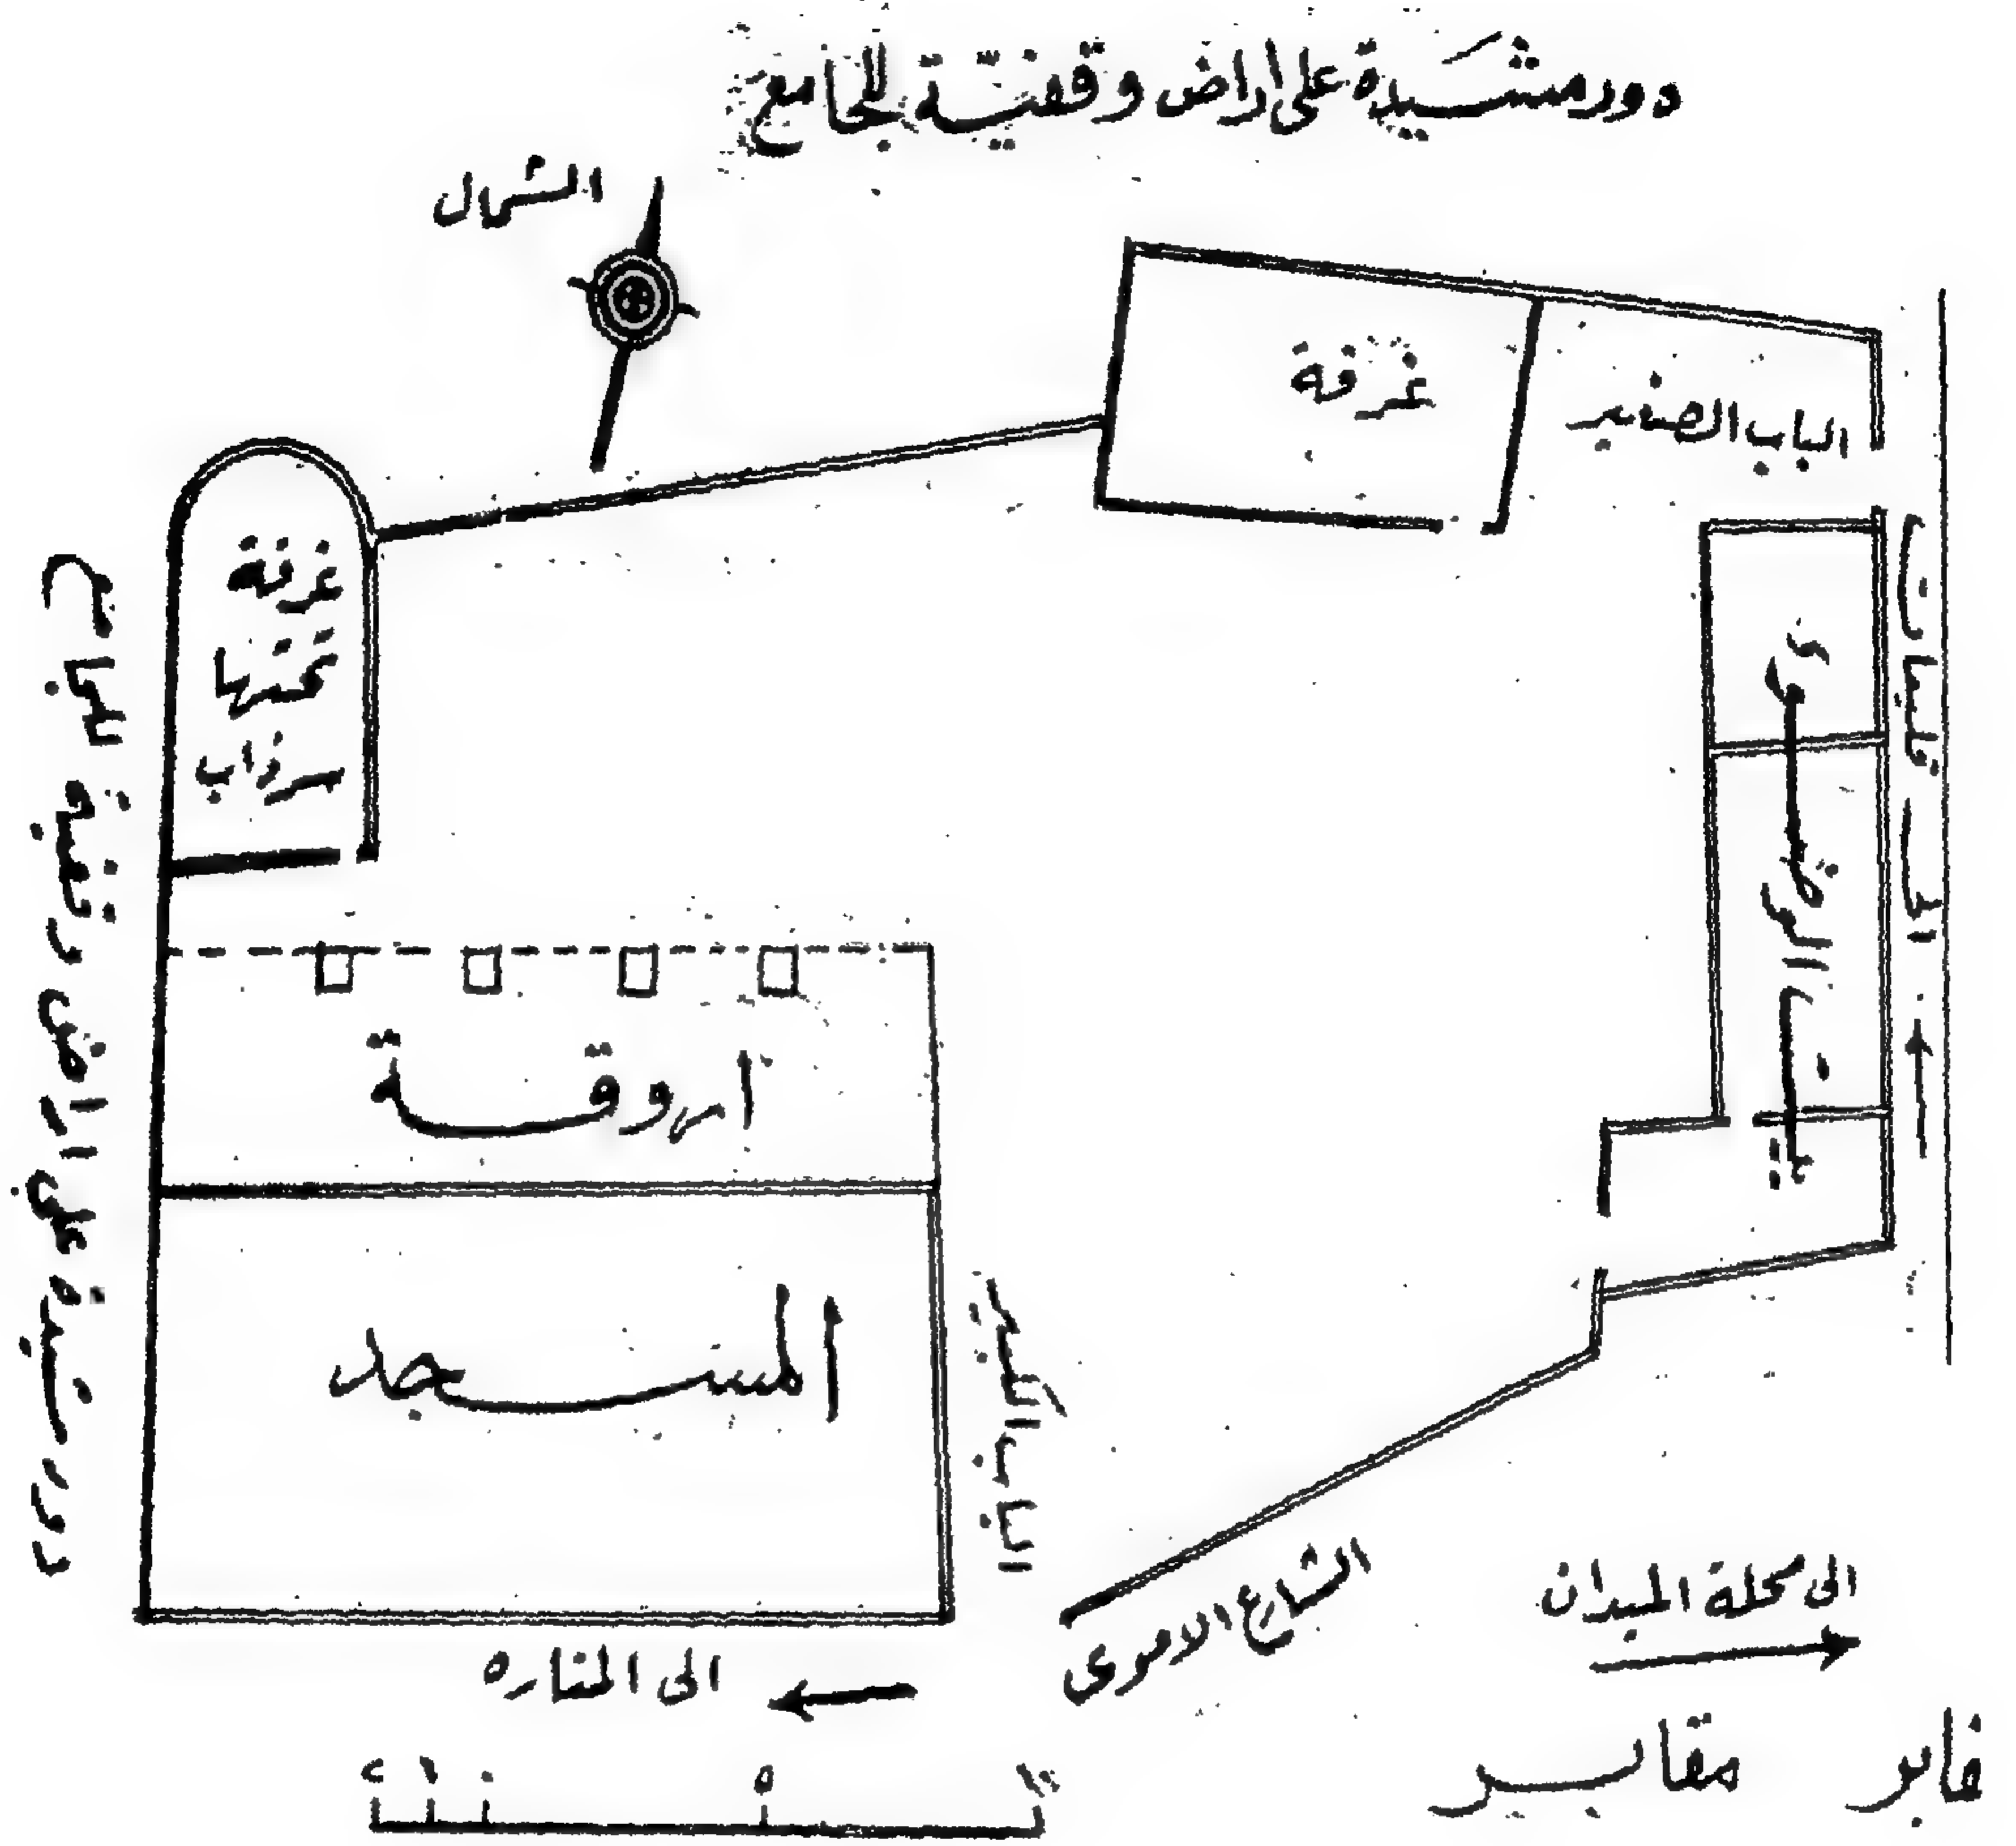 دور مشيدة على اراض وقفية للجامع
الشمال
غرفة
الباب الصغير
غرفة
تحتها
سرداب
دور مشيدة على اراض وقفية للجامع
الى
اروقة
المسجد
الباب الكبير
الشارع الامرى
الى محلة الميدان
الى المناره
مقابر
٢ ١ ٠ ٥ ١٠